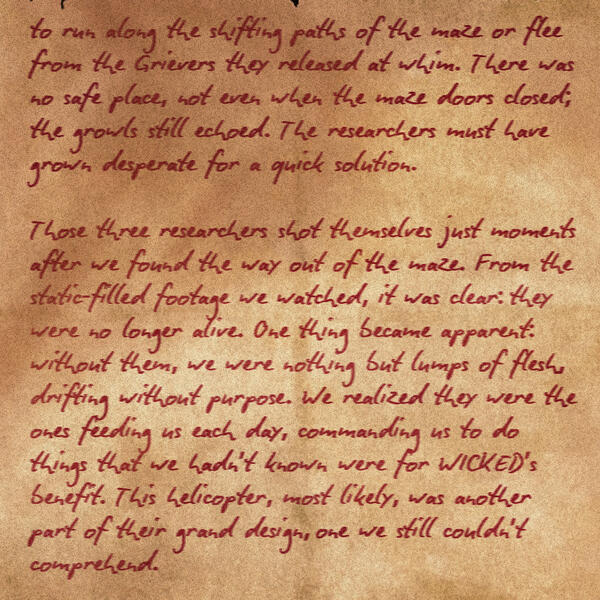 to run along the shifting paths of the maze or flee
from the Grievers they released at whim. There was
no safe place, not even when the maze doors closed;
the growls still echoed. The researchers must have
grown desperate for a quick solution.
Those three researchers shot themselves just moments
after we found the way out of the maze. From the
static-filled footage we watched, it was clear: they
were no longer alive. One thing became apparent:
without them, we were nothing but lumps of flesh,
drifting without purpose. We realized they were the
ones feeding us each day, commanding us to do
things that we hadn't known were for WICKED's
benefit. This helicopter, most likely, was another
part of their grand design, one we still couldn't
comprehend.